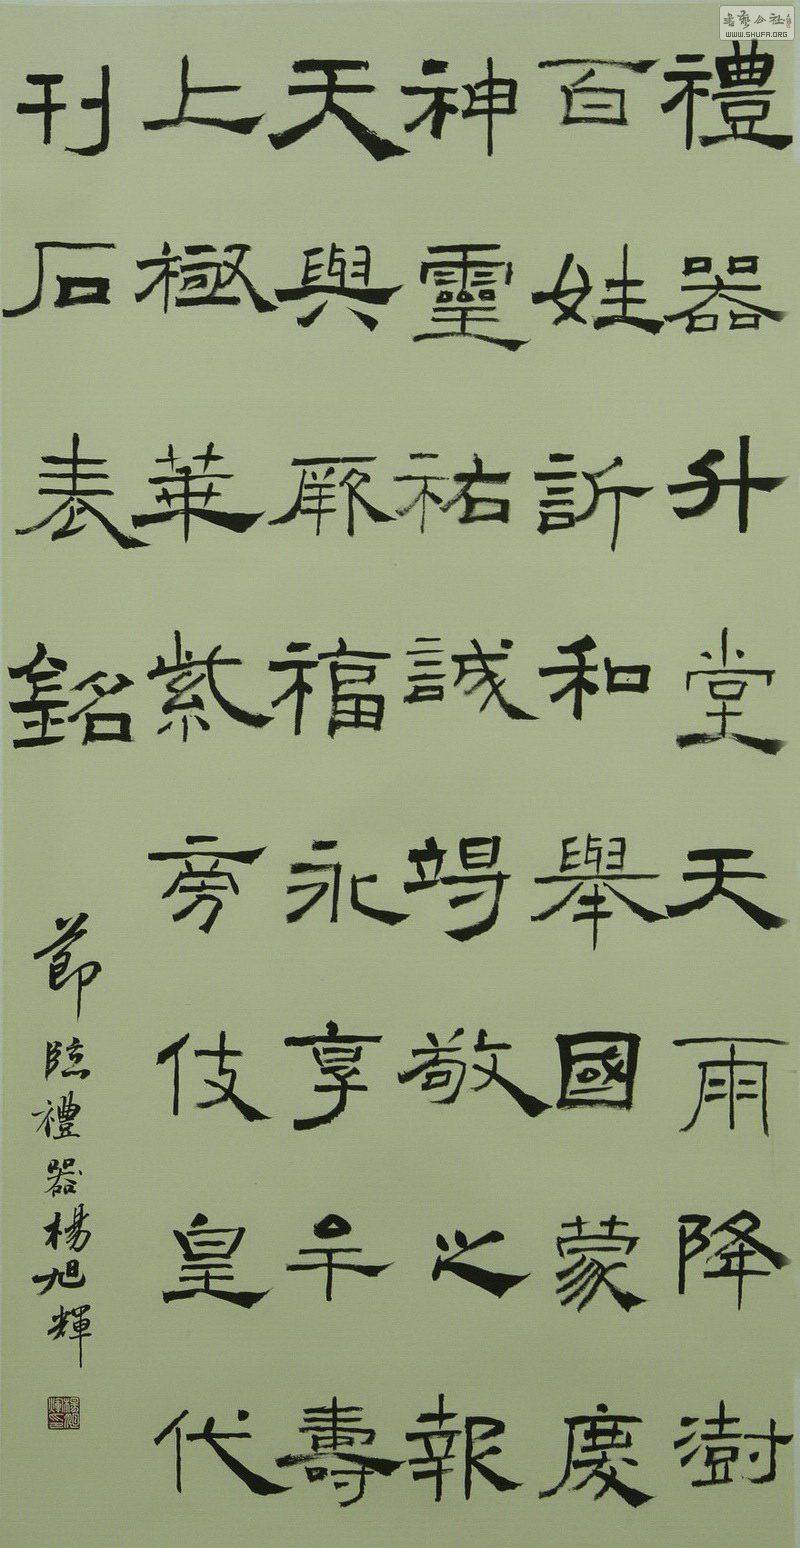 禮器升堂天雨降澍
百姓訢和舉國蒙慶
神靈祐誠竭敬之報
天與厥福永享牟壽
上極華紫旁伎皇代
刊石表銘
節臨禮器楊旭輝
書藝公社
WWW.SHUFA.ORG